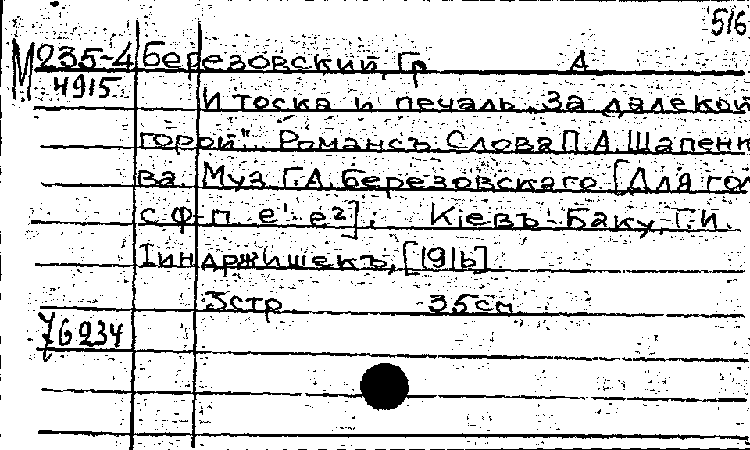 516
М 235-4 Березовский, Гр А
4915
И тоска и печаль „За далекой
горой". Романсъ. Слова П.А. Шапенк
ва. Муз. Г.А. Березовскаго [Для гол
с ф-п. e'- e²]. Кіевъ-Баку, Г.И.
Індржишекъ, [191b]
3стр. 35см
76234